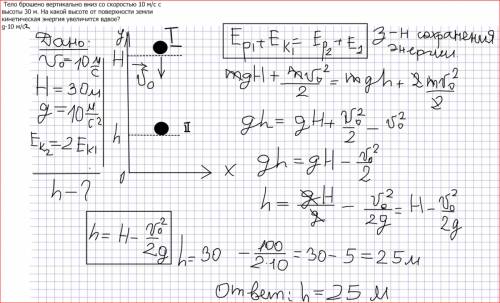 Тело брошено вертикально вниз со скоростью 10 м/с с
высоты 30 м. На какой высоте от поверхности земли
кинетическая энергия увеличится вдвое?
g-10 м/с2,
Дано:
v₀=10 м/с
H=30м
g=10 м/с²
Eк₂=2Eк₁
h-?
y
I
H
v₀
h
II
0
x
h=H-v₀²/2g
Ep₁+Eк₁=Ep₂+E₂
З-н сохранения
энергии
mgH+mv₀²/2=mgh+2mv₀²/2
gh=gH+v₀²/2-v₀²
gh=gH-v₀²/2
h=gH/g-v₀²/2g=H-v₀²/2g
h=30-100/2·10=30-5=25м
Ответ: h=25 м